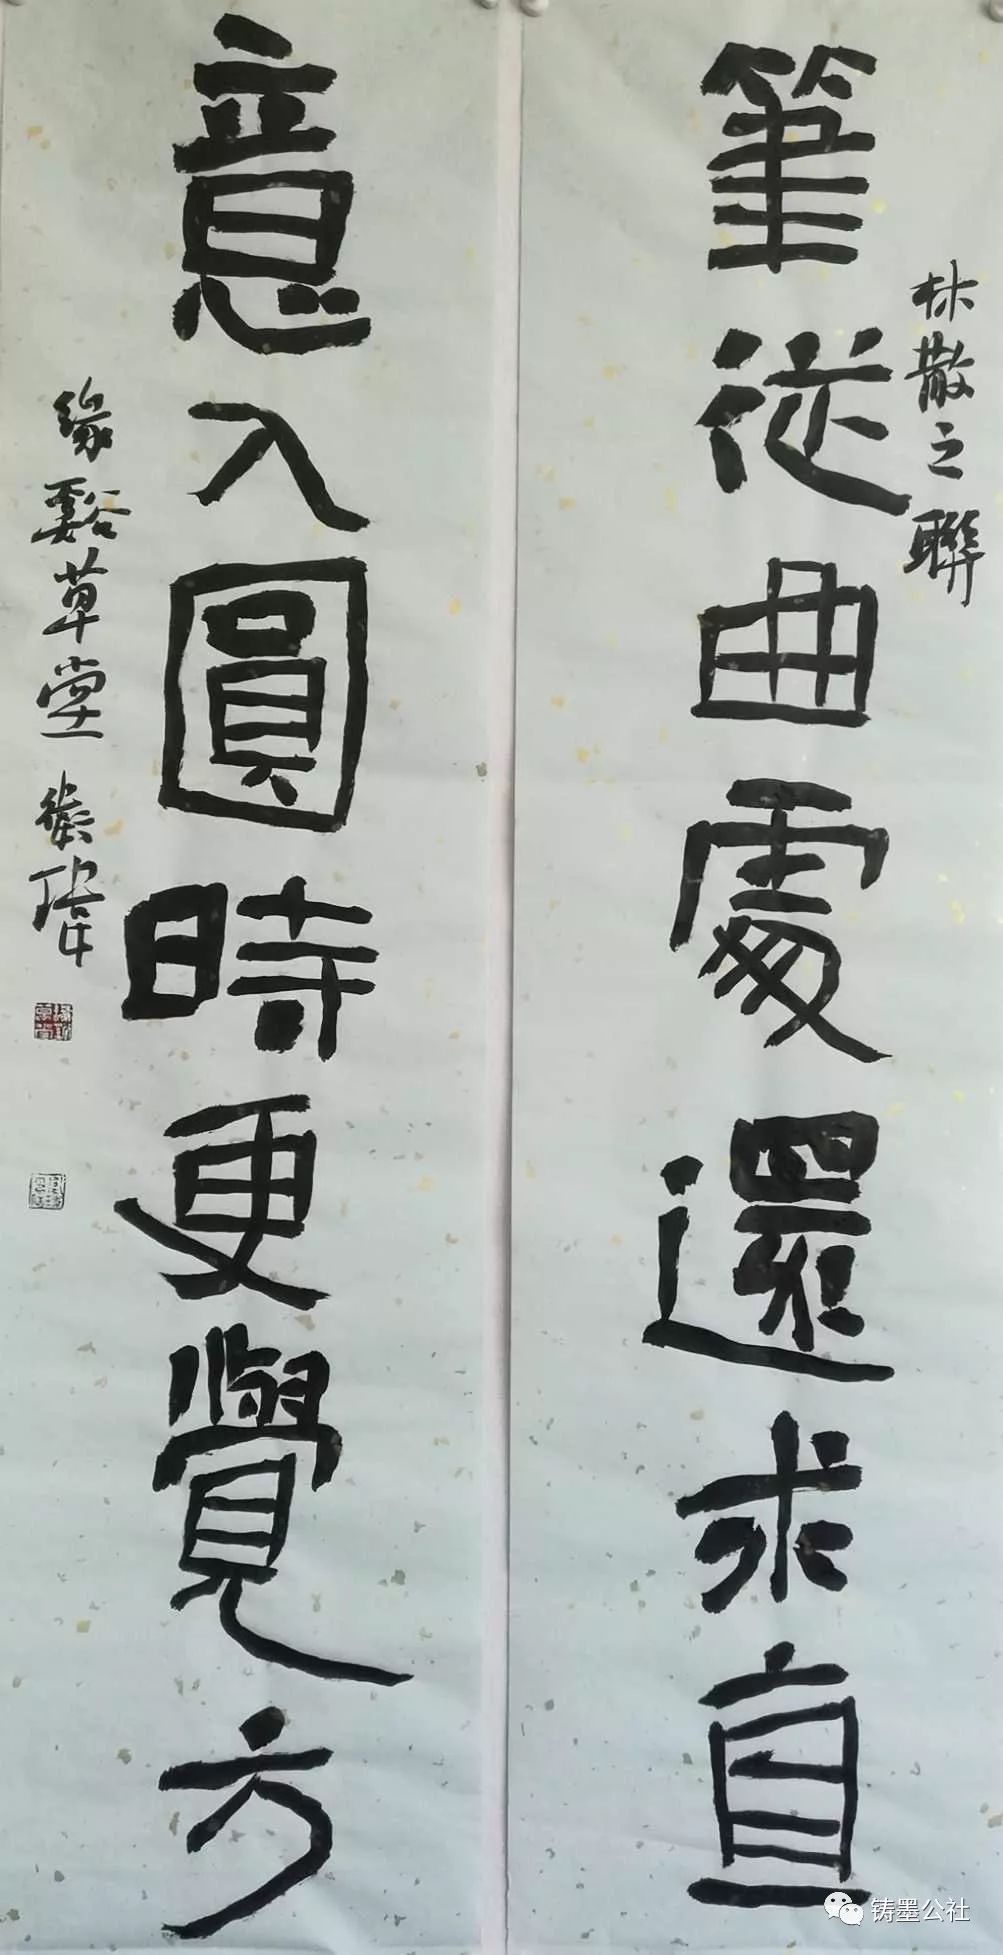 林散之聯
筆從曲處還求直
意入圓時更覺方
緣谿草堂
铸墨公社